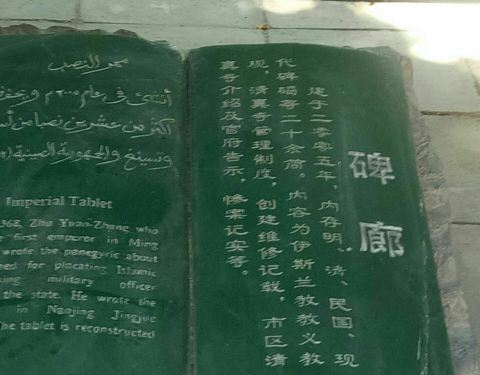 ممر النصب
أنشئ في عام ٢٠٠٥م ويحفظ
أكثر من عشرين نصبا من
وتسينغ والجمهورية الصينية
Imperial Tablet
Zhu Yuan-Zhang who
first emperor in Ming
wrote the panegyric about
for placating Islamic
military officer
the state. He wrote the
in Nanjing Jingjue
The tablet is reconstructed
碑廊
建于二零零五年，内存明、清、民国、现
代碑碣等二十余简。内容为伊斯兰教教义教
规，清真寺管理制度，创建维修记载，市区清
真寺介绍及官府告示，惨案记实等。